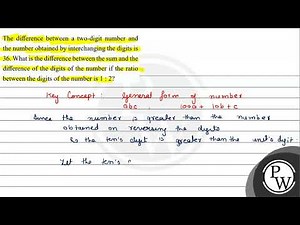 The difference between a two-digit number and
the number obtained by interchanging the digits is
36. What is the difference between the sum and the
difference of the digits of the number if the ratio
between the digits of the number is 1 : 2?
Key Concept : General form of number
abc 100a + 10b + c
Since the number is greater than the number
obtained on reversing the digits
So the ten's digit is greater than the unit's digit
Let the ten's
PW